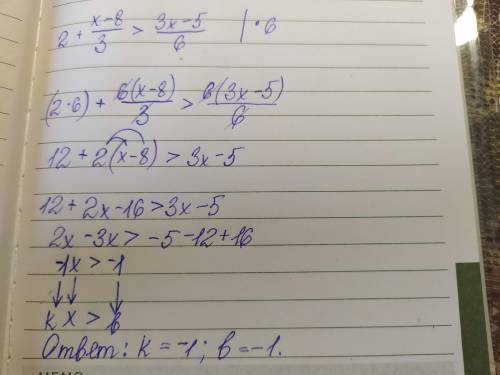 2 + (x-8)/3 > (3x-5)/6 | · 6
(2·6) + 6(x-8)/3 > 6(3x-5)/6
12 + 2(x-8) > 3x-5
12 + 2x-16 > 3x-5
2x-3x > -5-12+16
-1x > -1
k x > b
Ответ: k = -1; b = -1.